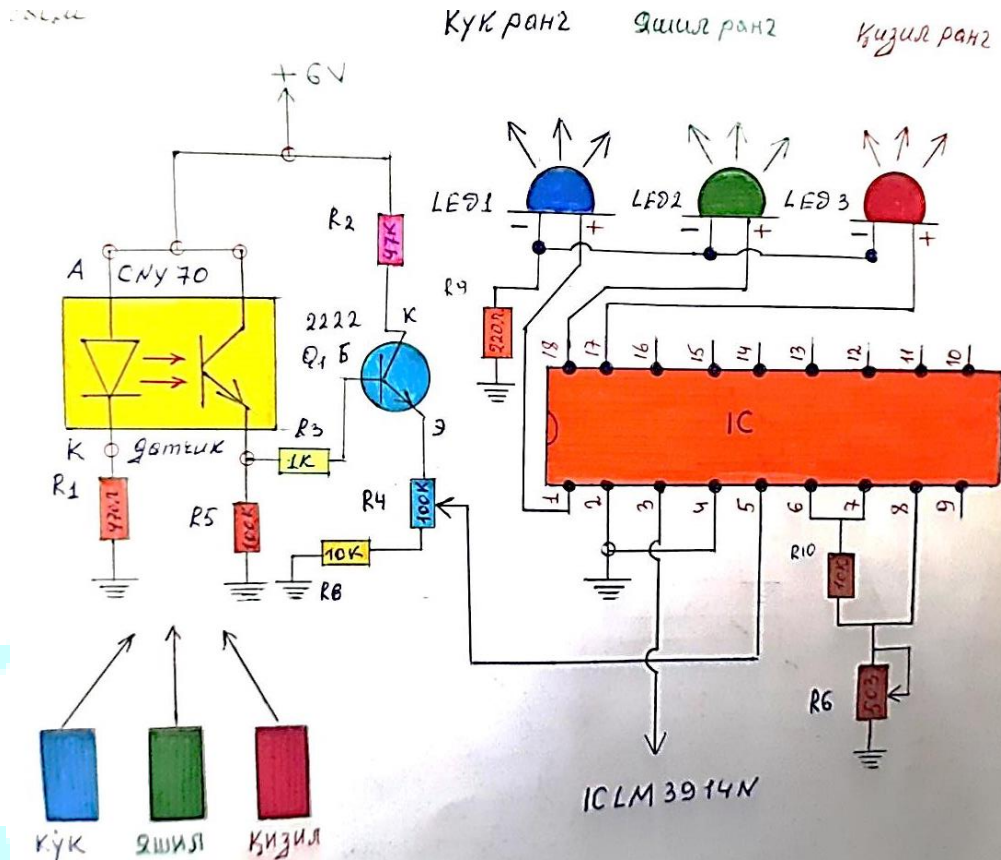 Кук ранг
Яшил ранг
Қизил ранг
+ 6V
LED1
LED2
LED3
- +
- +
- +
R2
47K
A
CNY 70
R9
220Л
2222
К
Q1 Б
Э
18 17 16 15 14 13 12 11 10
IC
1 2 3 4 5 6 7 8 9
К
датчик
R3
1K
R1
470Л
R5
100K
R4
100K
10K
R8
R10
10K
R6
503
ICLM3914N
Кўк
Яшил
Қизил